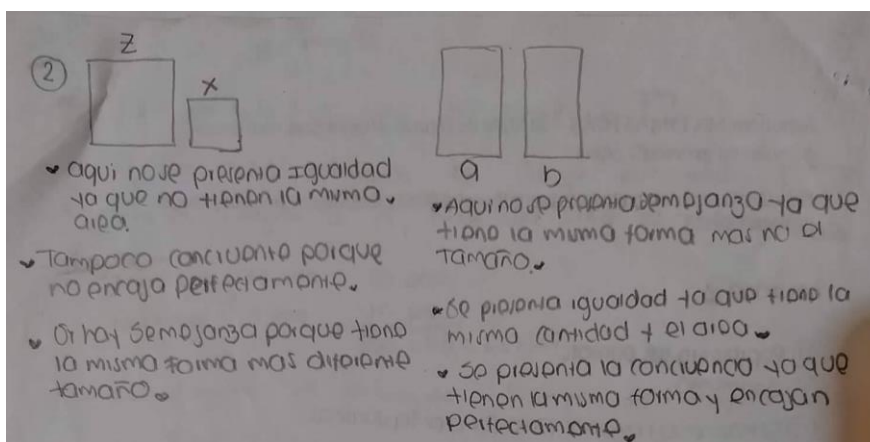 2
z
x
• aqui no se presenta Igualdad
ya que no tienen la misma.
area.
• Tampoco concruente porque
no encaja perfectamente.
• Or hay semejanza porque tiene
la misma forma mas diferente
tamaño.
a b
• Aqui no se presenta semejanza ya que
tiene la misma forma mas no el
Tamaño.
• Se presenta igualdad ya que tiene la
misma cantidad y el area.
• Se presenta la concruencia ya que
tienen la misma forma y encajan
perfectamente.